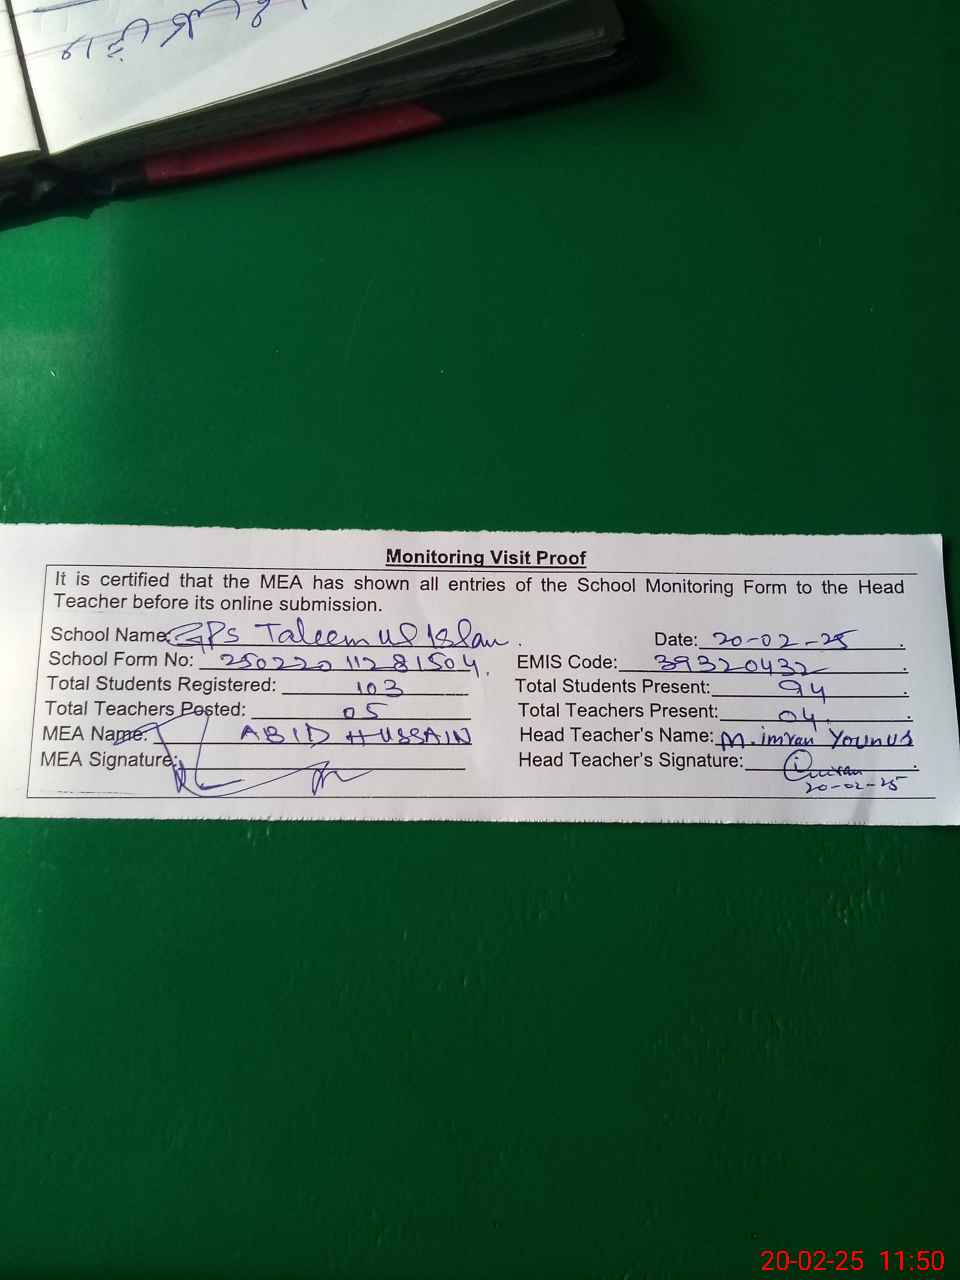 Monitoring Visit Proof
It is certified that the MEA has shown all entries of the School Monitoring Form to the Head
Teacher before its online submission.
School Name: GPS Taleem ul Islam. Date: 20-02-25
School Form No: 250220 11281504. EMIS Code: 39320432
Total Students Registered: 103 Total Students Present: 94
Total Teachers Posted: 05 Total Teachers Present: 04.
MEA Name: ABID HUSSAIN Head Teacher's Name: M.imran Younus
MEA Signature: Head Teacher's Signature: imran
20-02-25
20-02-25 11:50